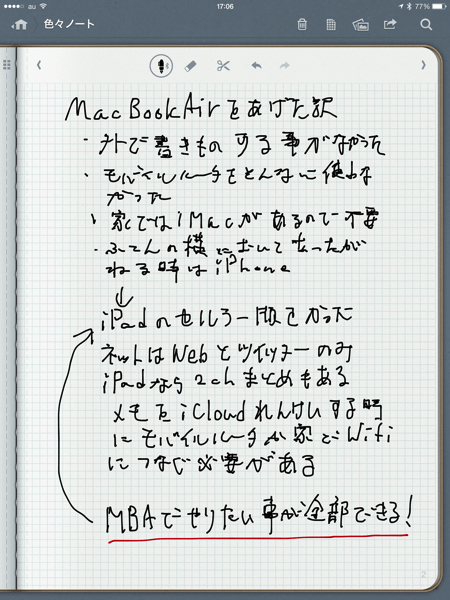 au 17:06 77%
色々ノート
MacBookAirをあげた訳
・外で書きものする事がなかった
・モバイルルータをそんなに使わな
かった
・家ではiMacがあるので不要
・ふとんの横においてあったが
ねる時はiPhone
↓
iPadのセルラー版をかった
ネットはWebとツイッターのみ
iPadなら2chまとめもある
メモをiCloudれんけいする時
にモバイルルータか家でWifi
につなぐ必要がある
MBAでやりたい事が全部できる!
2